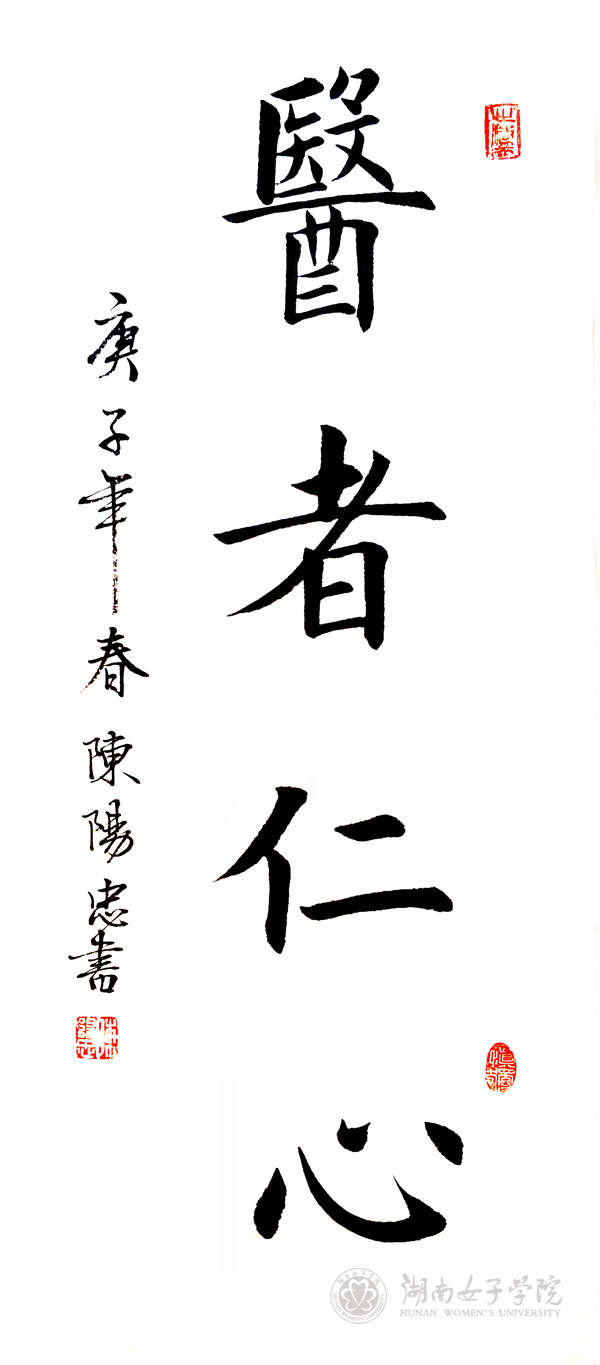 醫者仁心
庚子年春陳陽忠書
湖南女子学院
HUNAN WOMEN'S UNIVERSITY